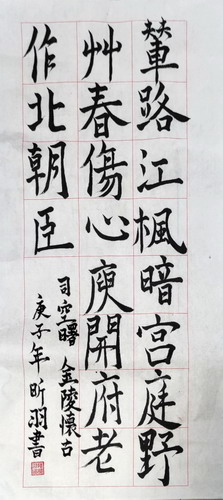 輦路江楓暗宮庭野
艸春傷心庾開府老
作北朝臣
司空曙 金陵懷古
庚子年昕羽書